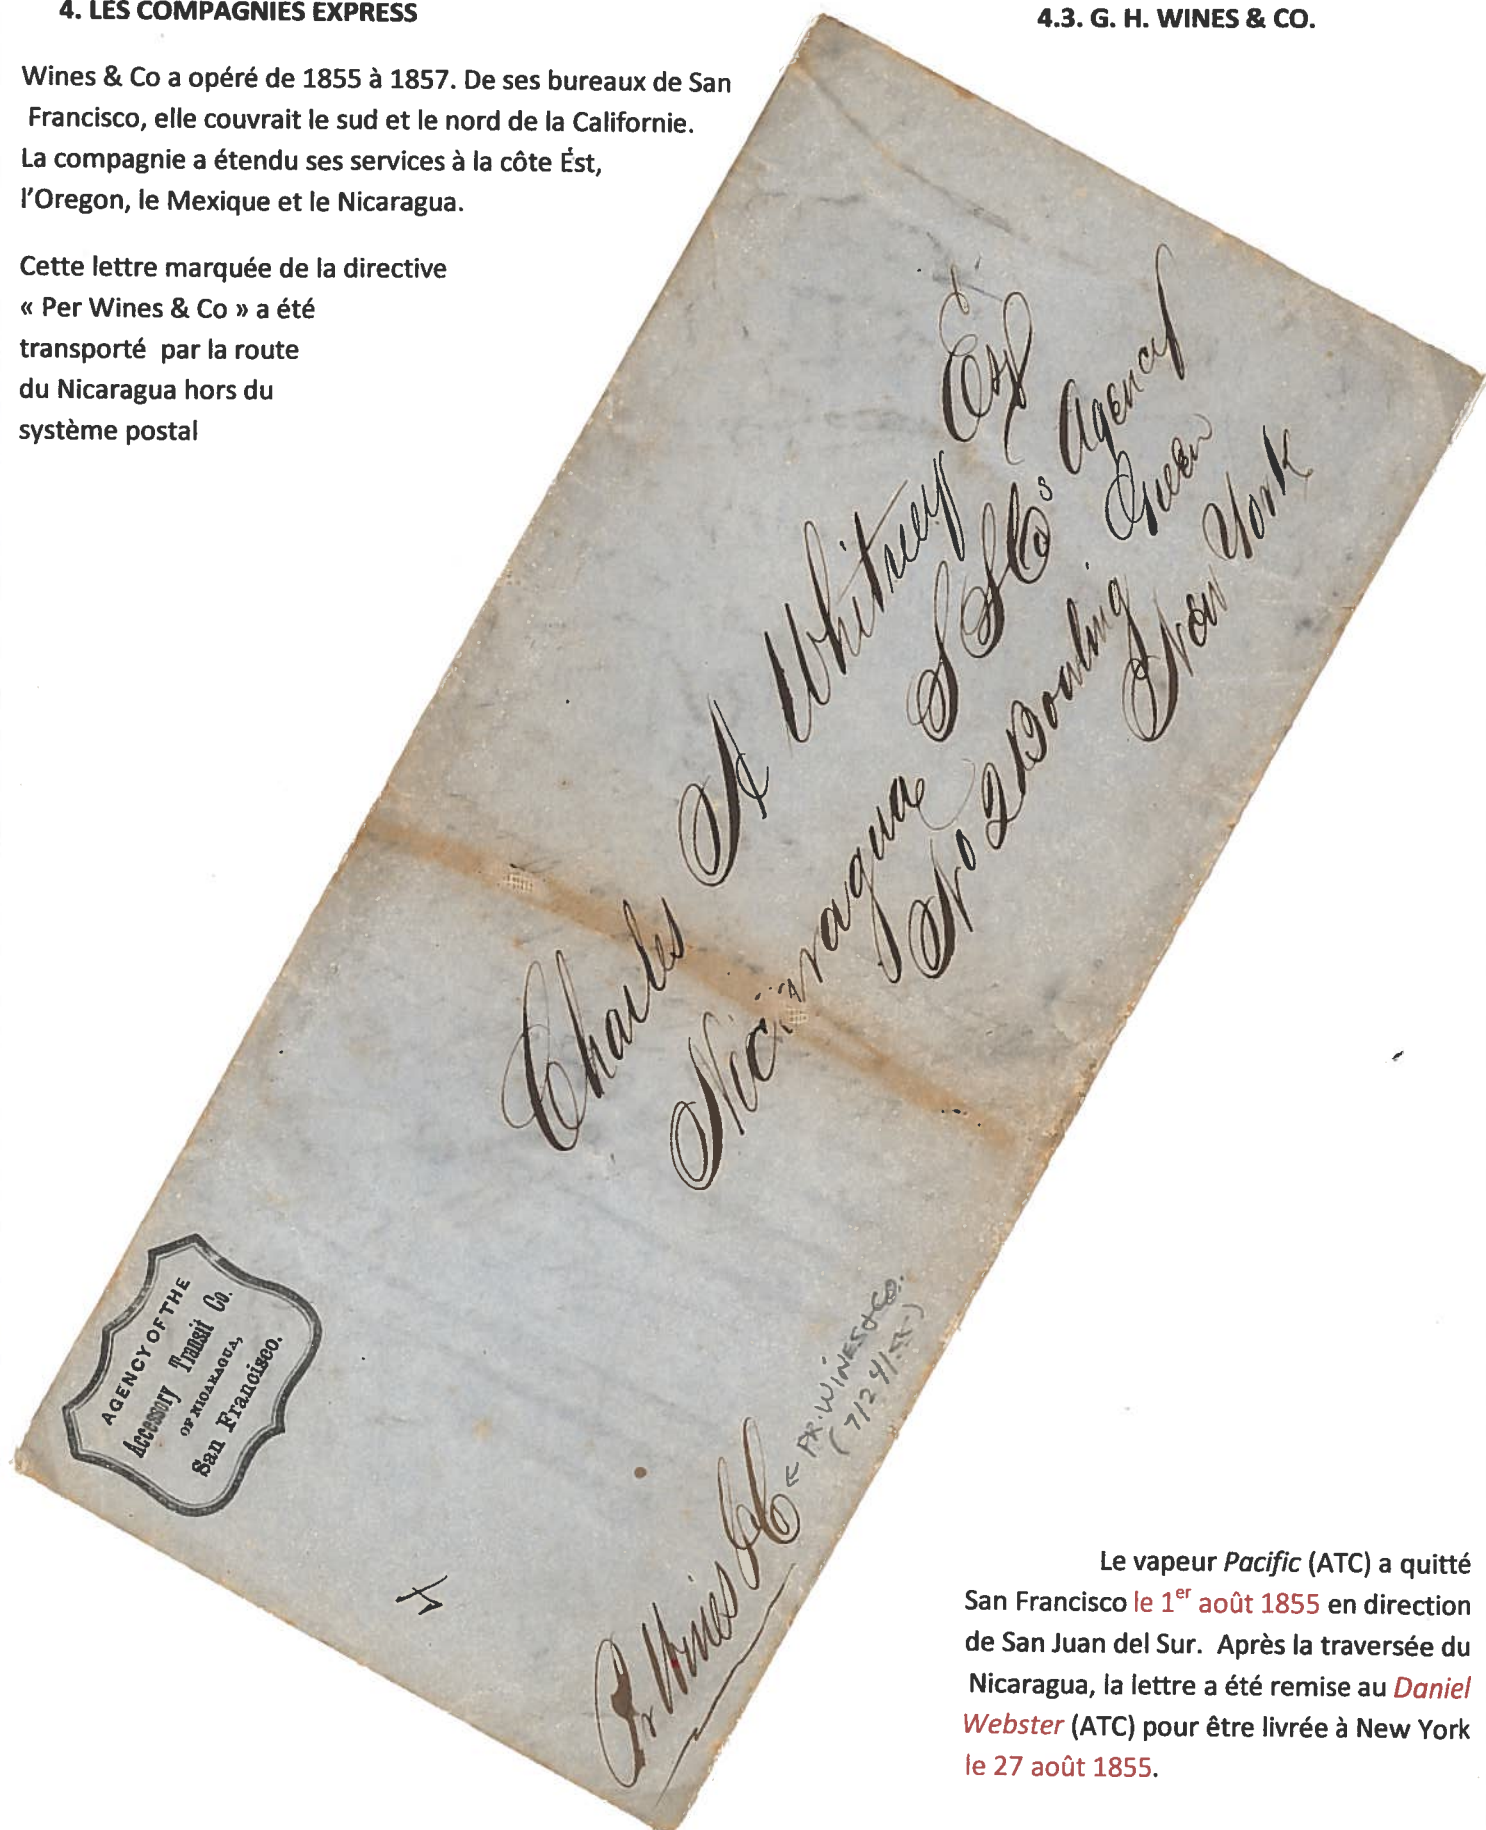 4. LES COMPAGNIES EXPRESS
4.3. G. H. WINES & CO.
Wines & Co a opéré de 1855 à 1857. De ses bureaux de San
Francisco, elle couvrait le sud et le nord de la Californie.
La compagnie a étendu ses services à la côte Ést,
l'Oregon, le Mexique et le Nicaragua.
Cette lettre marquée de la directive
« Per Wines & Co » a été
transporté par la route
du Nicaragua hors du
système postal
Charles A Whitney Esq
Nicaragua S S Cos Agency
No 2 Bowling Green
New York
AGENCY OF THE
Accessory Transit Co.
OF NICARAGUA,
San Francisco.
Pr Wines & C
← PR. WINES & CO.
(7/24/55)
Le vapeur Pacific (ATC) a quitté
San Francisco le 1er août 1855 en direction
de San Juan del Sur. Après la traversée du
Nicaragua, la lettre a été remise au Daniel
Webster (ATC) pour être livrée à New York
le 27 août 1855.